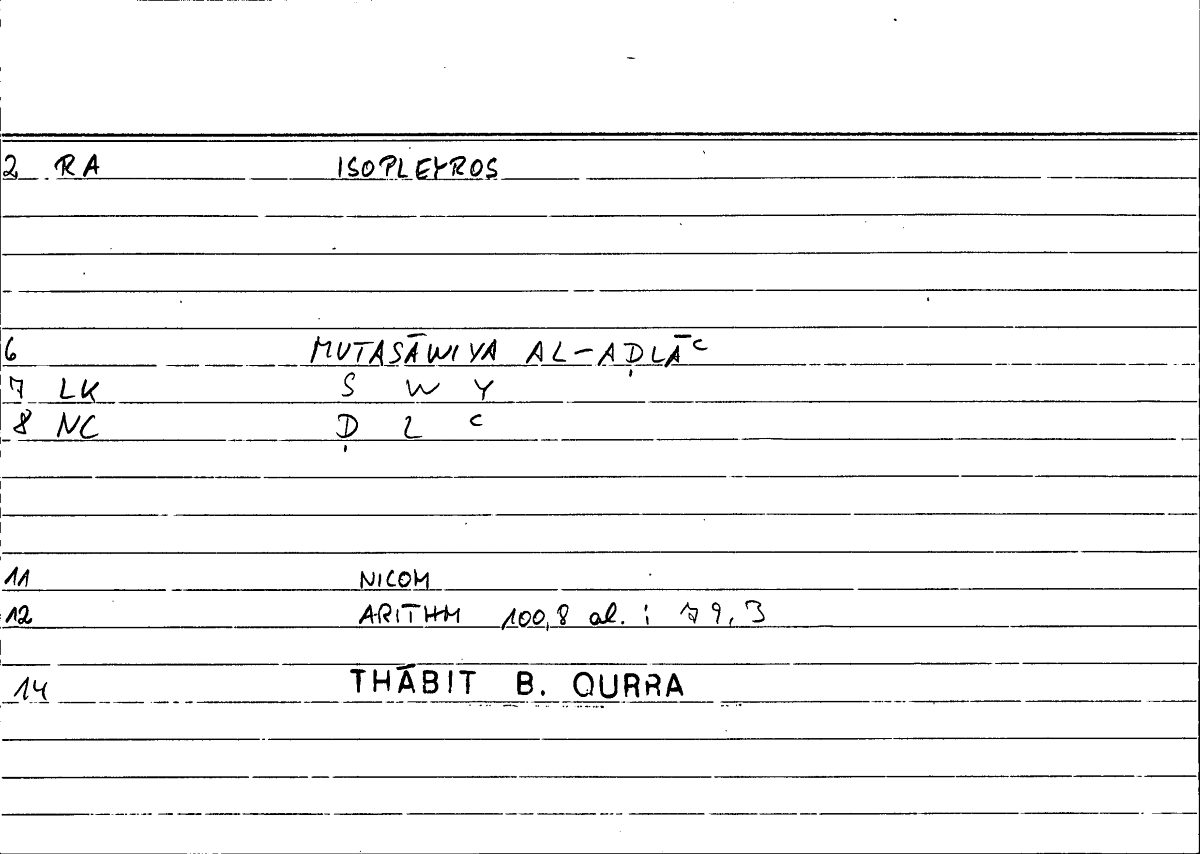 2 RA ISOPLEYROS
6 MUTASĀWIYA AL-AḌLĀᶜ
7 LK S W Y
8 NC Ḍ L ᶜ
11 NICOM
12 ARITHM 100,8 al. ; 79,3
14 THĀBIT B. QURRA